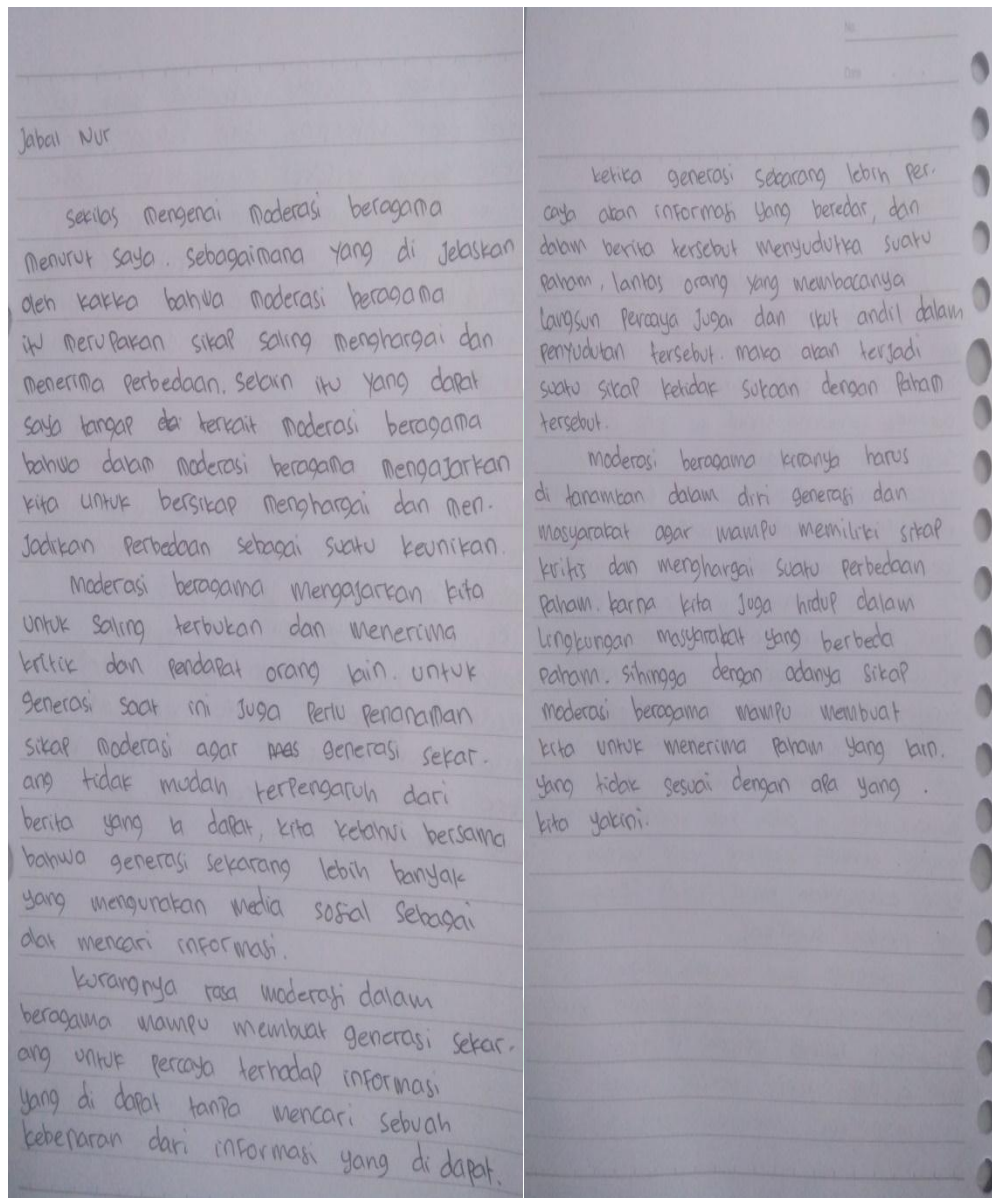 Jabal Nur
sekilas mengenai moderasi beragama
menurut saya. sebagaimana yang di Jelaskan
oleh kakka bahwa moderasi beragama
itu merupakan sikap saling menghargai dan
menerima perbedaan. selain itu yang dapat
saya tangap terkait moderasi beragama
bahwa dalam moderasi beragama mengajarkan
kita untuk bersikap menghargai dan men-
jadikan perbedaan sebagai suatu keunikan.
Moderasi beragama mengajarkan kita
untuk saling terbukan dan menerima
kritik dan pendapat orang lain. untuk
generasi saat ini Juga Perlu Penanaman
sikap moderasi agar generasi sekar-
ang tidak mudah terpengaruh dari
berita yang ia dapat, kita ketahui bersama
bahwa generasi sekarang lebih banyak
yang mengunakan media sosial sebagai
alat mencari informasi.
kurangnya rasa moderasi dalam
beragama mampu membuat generasi sekar-
ang untuk percaya terhadap informasi
yang di dapat tanpa mencari sebuah
kebenaran dari informasi yang di dapat.
No.
Date
ketika generasi sekarang lebih per-
caya akan informasi yang beredar, dan
dalam berita tersebut menyudutka suatu
paham, lantas orang yang membacanya
langsun percaya Juga dan ikut andil dalam
penyudutan tersebut. maka akan terjadi
suatu sikap ketidak sukaan dengan Paham
tersebut.
moderasi beragama kiranya harus
di tanamkan dalam diri generasi dan
masyarakat agar mampu memiliki sikap
kritis dan menghargai suatu perbedaan
paham. karna kita Juga hidup dalam
lingkungan masyarakat yang berbeda
paham. sihingga dengan adanya sikap
moderasi beragama mampu membuat
kita untuk menerima paham yang lain.
yang tidak sesuai dengan apa yang.
kita yakini.